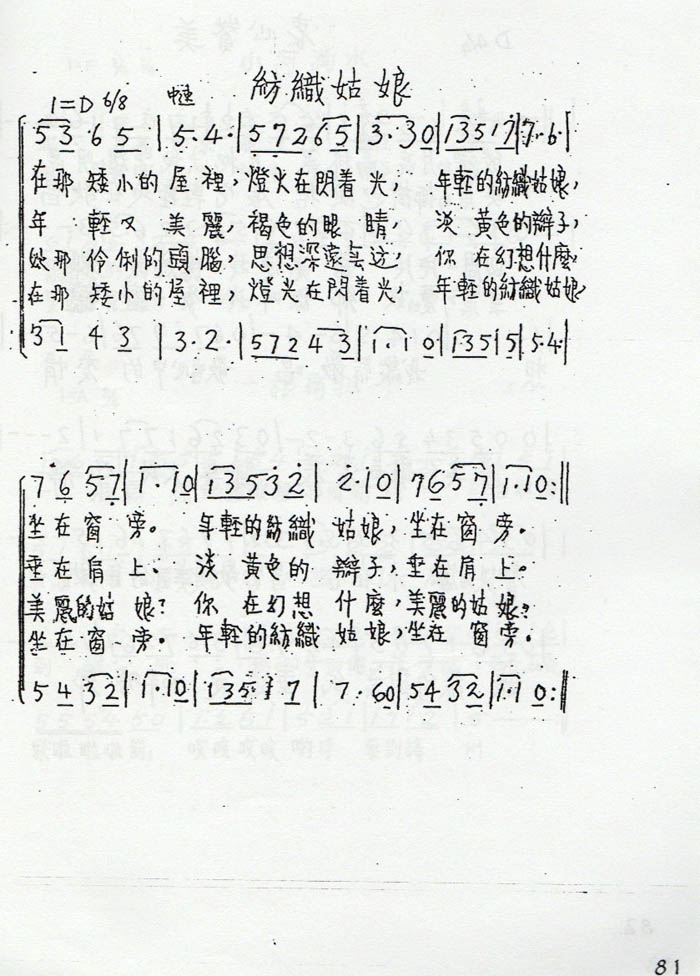 紡織姑娘
1=D 6/8 中速
5 3 · 6 5 | 5 · 4 · | 5 7 2 6 5 | 3 · 3 0 | 1 3 5 1 7 | 7 · 6 · |
在那矮小的屋裡，燈火在閃着光， 年輕的紡織姑娘，
年 輕又美麗，褐色的眼睛， 淡黃色的辮子，
她那伶俐的頭腦，思想深遠 你在幻想什麼
在那矮小的屋裡，燈光在閃着光， 年輕的紡織姑娘
3 1 4 3 | 3 · 2 · | 5 7 2 4 3 | 1 · 1 0 | 1 3 5 1 5 | 5 · 4 |
7 6 5 7 | 1 · 1 0 | 1 3 5 3 2 | 2 · 1 0 | 7 6 5 7 | 1 · 1 0 :||
坐在窗旁。 年輕的紡織 姑娘，坐在窗旁。
垂在肩上。 淡黃色的 辮子，垂在肩上。
美麗的姑娘？ 你在幻想 什麼，美麗的姑娘？
坐在窗旁。 年輕的紡織 姑娘，坐在窗旁。
5 4 3 2 | 1 · 1 0 | 1 3 5 · 1 7 | 7 · 6 0 | 5 4 3 2 | 1 · 1 0 :||
81